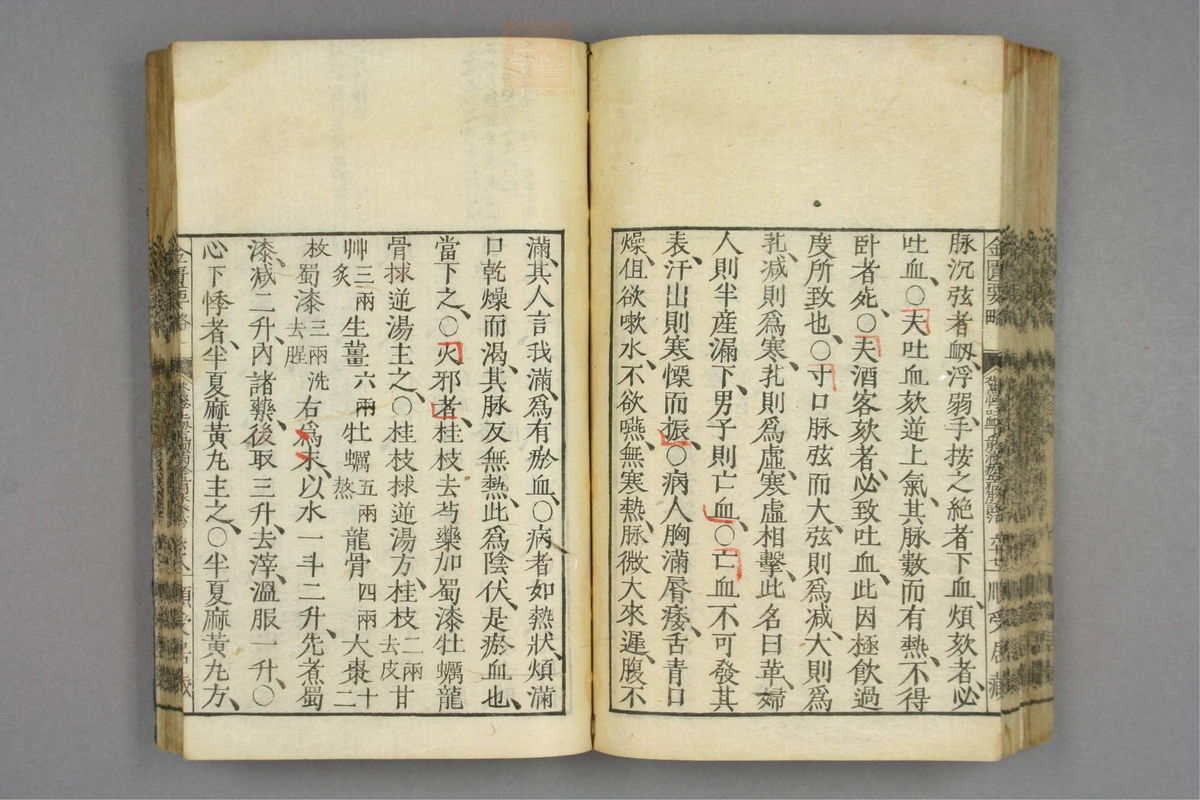 脉沉弦者衂、浮弱、手按之絕者下血、煩欬者、必
吐血、○夫吐血欬逆上氣、其脉數而有熱、不得
卧者死、○夫酒客欬者、必致吐血、此因極飮過
度所致也、○寸口脉弦而大、弦則爲减、大則爲
芤、减則爲寒、芤則爲虛、寒虛相擊、此名曰革、婦
人則半産漏下、男子則亡血、○亡血不可發其
表、汗出則寒慄而振、○病人胸滿唇痿、舌靑口
燥、伹欲嗽水、不欲嚥、無寒熱、脉微大來遲、腹不
滿、其人言我滿、爲有瘀血、○病者如熱狀、煩滿
口乾燥而渴、其脉反無熱、此爲陰伏、是瘀血也、
當下之、○火邪者、桂枝去芍藥加蜀漆牡蠣龍
骨捄逆湯主之、○桂枝捄逆湯方、桂枝二兩去皮甘
艸三兩炙生薑六兩牡蠣五兩熬龍骨四兩大棗十二
枚蜀漆三兩洗去腥右爲末、以水一斗二升、先煮蜀
漆、减二升、內諸藥、後取三升、去滓、溫服一升、○
心下悸者、半夏麻黃丸主之、○半夏麻黃丸方、